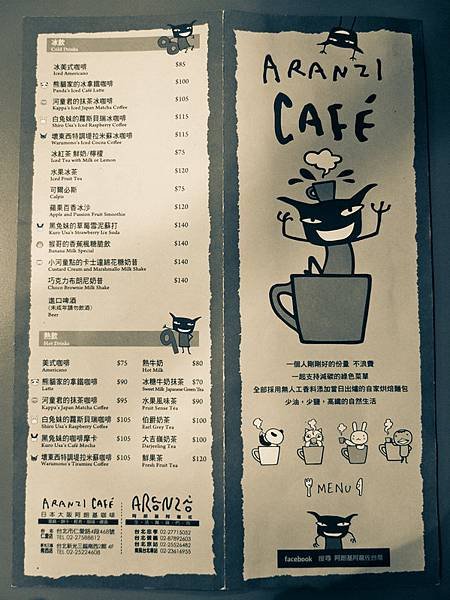 冰飲
Cold Drinks
冰美式咖啡 $85
Iced Americano
熊貓家的冰拿鐵咖啡 $100
Panda's Iced Café Latte
河童君的抹茶冰咖啡 $105
Kappa's Iced Japan Matcha Coffee
白兔妹的蘿斯貝瑞冰咖啡 $115
Shiro Usa's Iced Raspberry Coffee
壞東西特調堤拉米蘇冰咖啡 $115
Warumono's Iced Cocoa Coffee
冰紅茶 鮮奶/檸檬 $75
Iced Tea with Milk or Lemon
水果冰茶 $120
Iced Fruit Tea
可爾必斯 $75
Calpis
蘋果百香冰沙 $120
Apple and Passion Fruit Smoothie
黑兔妹的草莓雪泥蘇打 $140
Kuro Usa's Strawberry Ice Soda
猴哥的香蕉楓糖脆飲 $140
Banana Milk Special
小河童點的卡士達綿花糖奶昔 $140
Custard Cream and Marshmallo Milk Shake
巧克力布朗尼奶昔 $140
Choco Brownie Milk Shake
進口啤酒
(未成年請勿飲酒)
Beer
熱飲
Hot Drinks
美式咖啡 $75
Americano
熊貓家的拿鐵咖啡 $90
Latte
河童君的抹茶咖啡 $95
Kappa's Japan Matcha Coffee
白兔妹的蘿斯貝瑞咖啡 $105
Shiro Usa's Raspberry Coffee
黑兔妹的咖啡摩卡 $105
Kuro Usa's Café Mocha
壞東西特調堤拉米蘇咖啡 $105
Warumono's Tiramisu Coffee
熱牛奶 $80
Hot Milk
冰糖牛奶抹茶 $70
Sweet Milk Japanese Green Tea
水果風味茶 $90
Fruit Sense Tea
伯爵奶茶 $100
Earl Grey Tea
大吉嶺奶茶 $100
Darjeeling Tea
鮮果茶 $120
Fresh Fruit Tea
ARANZI CAFÉ
日本大阪阿朗基咖啡
台北市仁愛路4段468號
TEL 02-27588812
台北新光三越南西2館 4F
TEL 02-25224608
ARONZO
02-27715052
02-87892603
02-25526482
02-23616955
ARANZI
CAFÉ
一個人剛剛好的份量 不浪費
一起支持減碳的綠色菜單
全部採用無人工香料添加當日出爐的自家烘焙麵包
少油，少鹽，高纖的自然生活
MENU
facebook 搜尋 阿朗基阿龍佐台灣